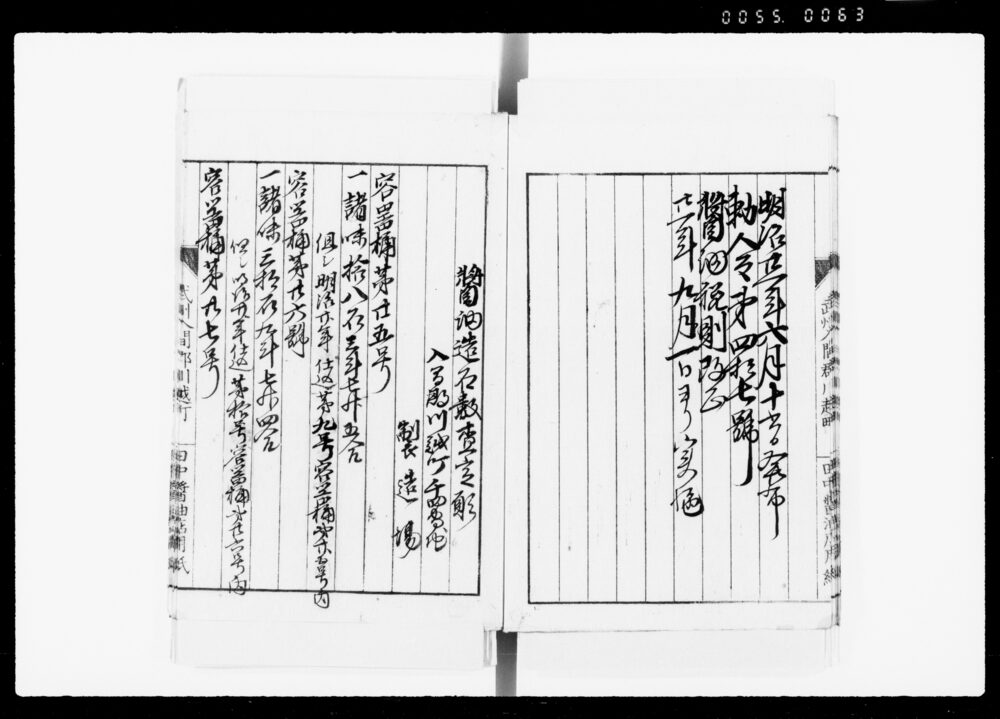 0055. 0063
明治廿一年六月十六日発布
勅令第四拾七號
醤油税則改正
廿一年九月一日ヨリ実施
武州入間郡川越町
田中醤油店用紙
醤油造石数査定願
入間郡川越町
製造場
容器桶第廿五号
一諸味拾八石三斗七升五合
但シ明治廿年仕込第九号容器桶第廿五号内
容器桶第廿六號
一諸味三拾石九斗七升四合
但シ明治廿年仕込第拾号容器桶第廿六号内
容器桶第九七号
武州入間郡川越町
田中醤油店用紙